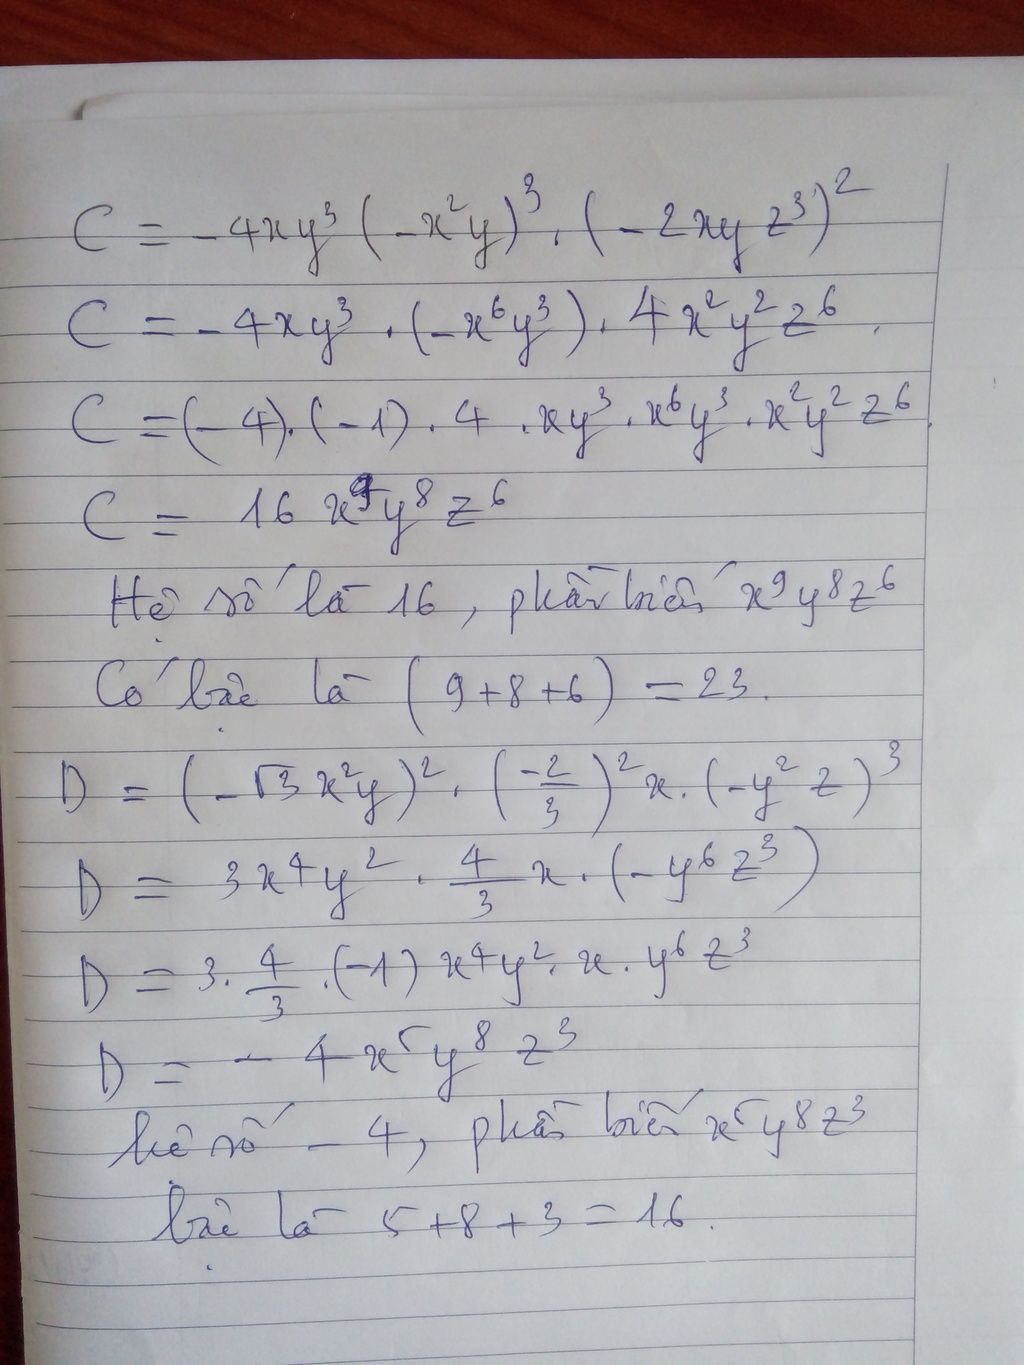 C = -4xy³ (-x²y)³ . (-2xy z³)²
C = -4xy³ . (-x⁶y³) . 4x²y²z⁶ .
C = (-4).(-1) . 4 . xy³ . x⁶y³ . x²y² z⁶ .
C = 16 x⁹y⁸ z⁶
Hệ số là 16 , phần biến x⁹y⁸z⁶
Có bậc là (9+8+6) = 23.
D = (-√3 x²y)² . (-2/3)² x . (-y² z)³
D = 3x⁴y² . 4/3 x . (-y⁶ z³)
D = 3. 4/3 .(-1) x⁴y². x . y⁶ z³
D = - 4x⁵y⁸ z³
hệ số - 4, phần biến x⁵y⁸z³
bậc là 5+8+3 = 16.